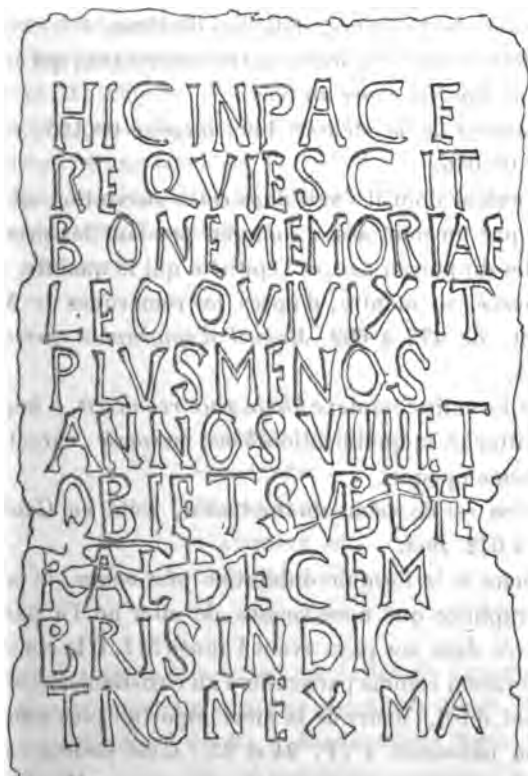 HIC IN PACE
REQVIESCIT
BONE MEMORIAE
LEO QVI VIXIT
PLVS MENOS
ANNOS VIIII ET
OBIET SVB DIE
KAL DECEM
BRIS INDIC
TNONEXMA